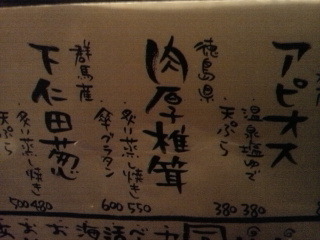 アピオス
・温泉塩ゆで 380
・天ぷら 380
徳島県
肉厚椎茸
・炙り蒸し焼き 550
・傘グラタン 600
群馬産
下仁田葱
・炙り蒸し焼き 480
・天ぷら 500